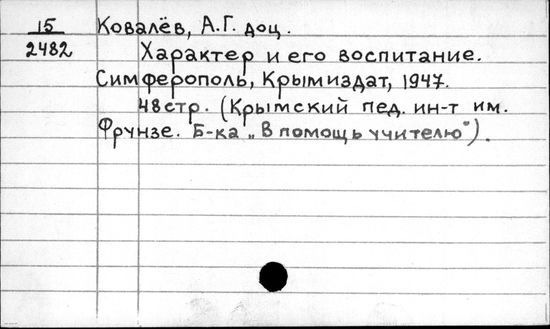 15 Ковалёв, А.Г. доц.
2482 Характер и его воспитание.
Симферополь, Крымиздат, 1947.
48 стр. (Крымский пед. ин-т им.
Фрунзе. Б-ка „В помощь учителю").